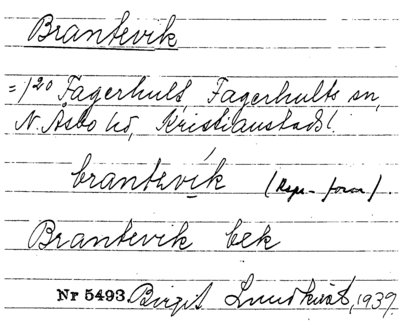 Brantevik
= 1/20 Fagerhult, Fagerhults sn,
N. Åsbo hd, Kristianstads l.
brantevík (Rspr-form).
Brantevik bek
Nr 5493 Birgit Lundkvist, 1939.